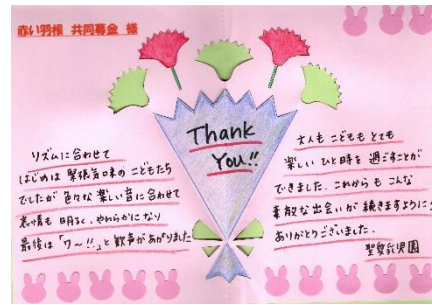 赤い羽根 共同募金 様
リズムに合わせて
はじめは 緊張気味の こどもたち
でしたが 色々な 楽しい音に合わせて
表情も 明るく、やわらかになり
最後は「ワ〜!!」と 歓声があがりました
Thank
You!!
大人も こどもも とても
楽しい ひと時を 過ごすことが
できました。これからも こんな
素敵な 出会いが 続きますように
ありがとうございました。
聖質乳児園